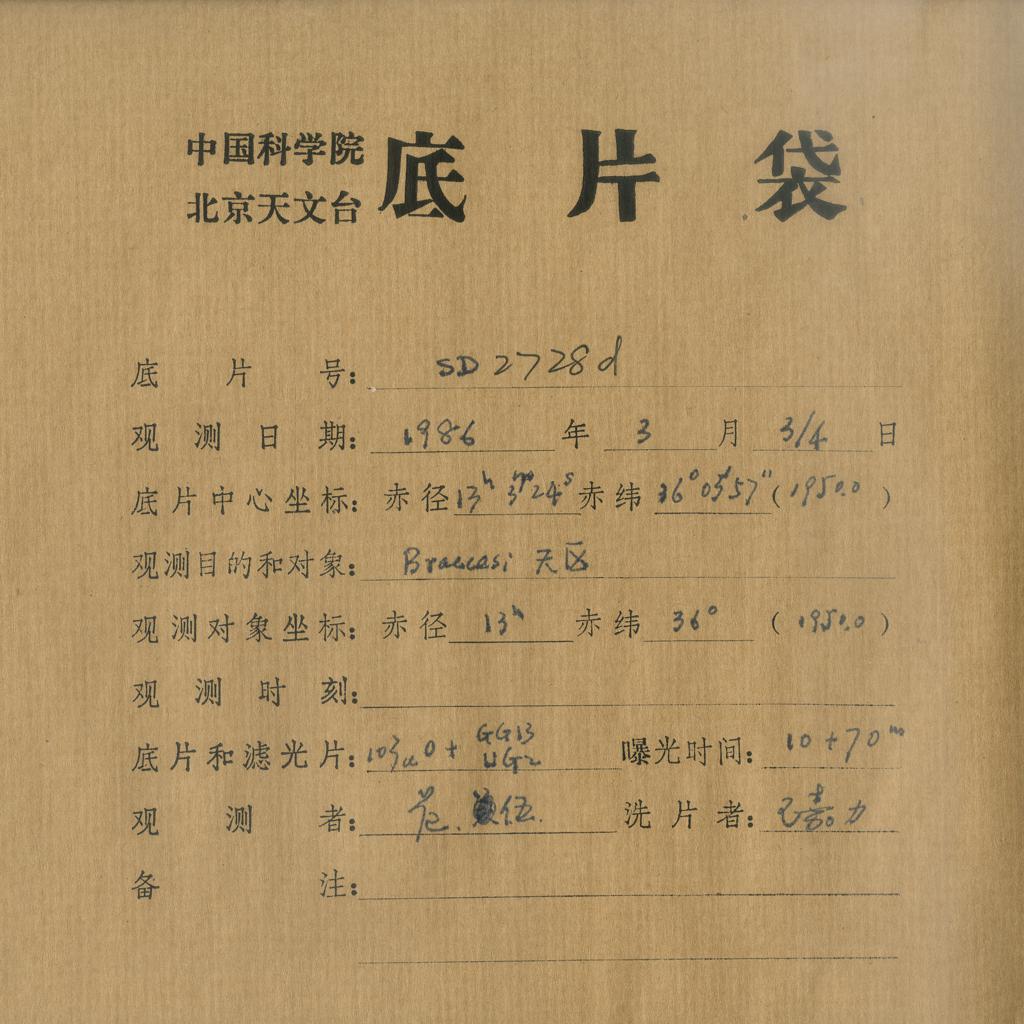 中国科学院
北京天文台
底片袋
底片号: SD2728d
观测日期: 1986 年 3 月 3/4 日
底片中心坐标: 赤径 13ʰ 3ᵐ24ˢ 赤纬 36°05′57″ (1950.0)
观测目的和对象: Braccasi 天区
观测对象坐标: 赤径 13ʰ 赤纬 36° (1950.0)
观测时刻:
底片和滤光片: 103aO + GG13 UG2 曝光时间: 10+70ᵐ
观测者: 伍. 洗片者: 嘉力
备注: